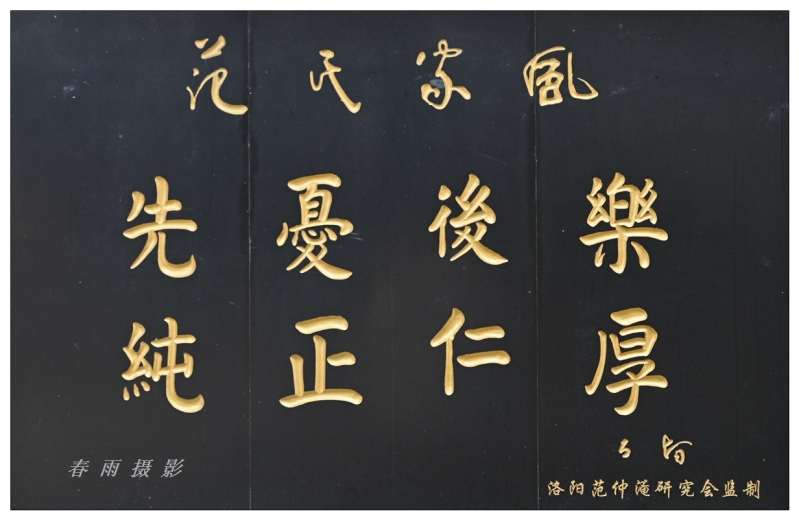 范氏家風
先憂後樂
純正仁厚
洛阳范仲淹研究会监制
春雨摄影